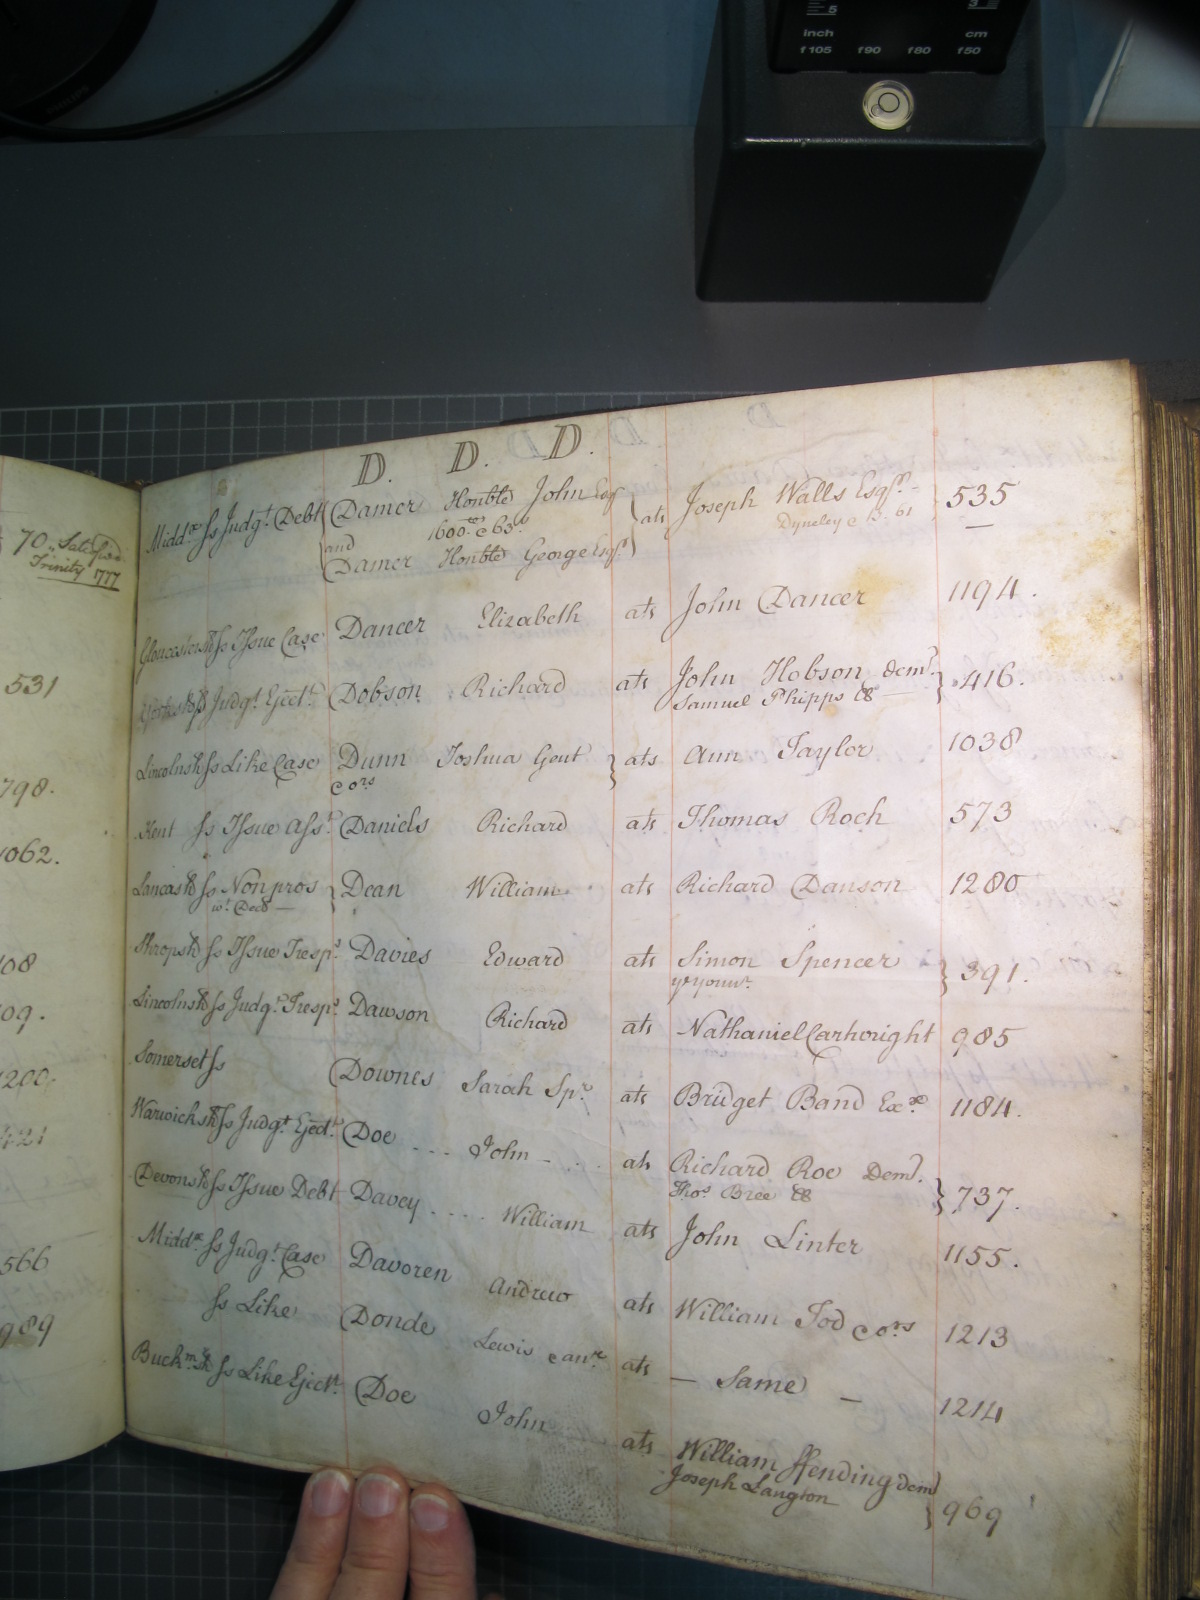 5 3
inch cm
f105 f90 f80 f50
PHILIPS
D. D. D.
70,, Satisfied
Trinity 1777
531
798.
1062.
108
09.
1200
421
566
989
Midd.x Ss Judg.t Debt (Damer Honble John Esq ats Joseph Walls Esq.r 535
1600 63 Dyneley 61
and
Damer Honble George Esq.r
Gloucestersh Ss Issue Case Dancer Elizabeth ats John Dancer 1194.
Ss Judg.t Eject.t Dobson Richard ats John Hobson dem.d 416.
Samuel Phipps &c
Lincolnsh Ss Like Case Dunn Joshua Gent ats Ann Taylor 1038
cors
Kent Ss Issue Ass.t Daniels Richard ats Thomas Roch 573
Lancash Ss Nonpros Dean William ats Richard Danson 1280
w.t Decd
Shropsh Ss Issue Tresp.s Davies Edward ats Simon Spencer 391.
ye youn.r
Lincolnsh Ss Judg.t Tresp.s Dawson Richard ats Nathaniel Carhoright 985
Somerset Ss Downes Sarah Sp.r ats Bridget Band Ex.x 1184.
Warwicksh Ss Judg.t Eject.t Doe John ats Richard Roe Dem.d 737.
Tho.s Bree &c
Devonsh Ss Issue Debt Davey William ats John Linter 1155.
Midd.x Ss Judg.t Case Davoren Andrew ats William Tod cors 1213
Ss Like Donde Lewis ats — Same — 1214
Buck.m sh Ss Like Eject.t Doe John ats William ffending dem.d 969
Joseph Langton